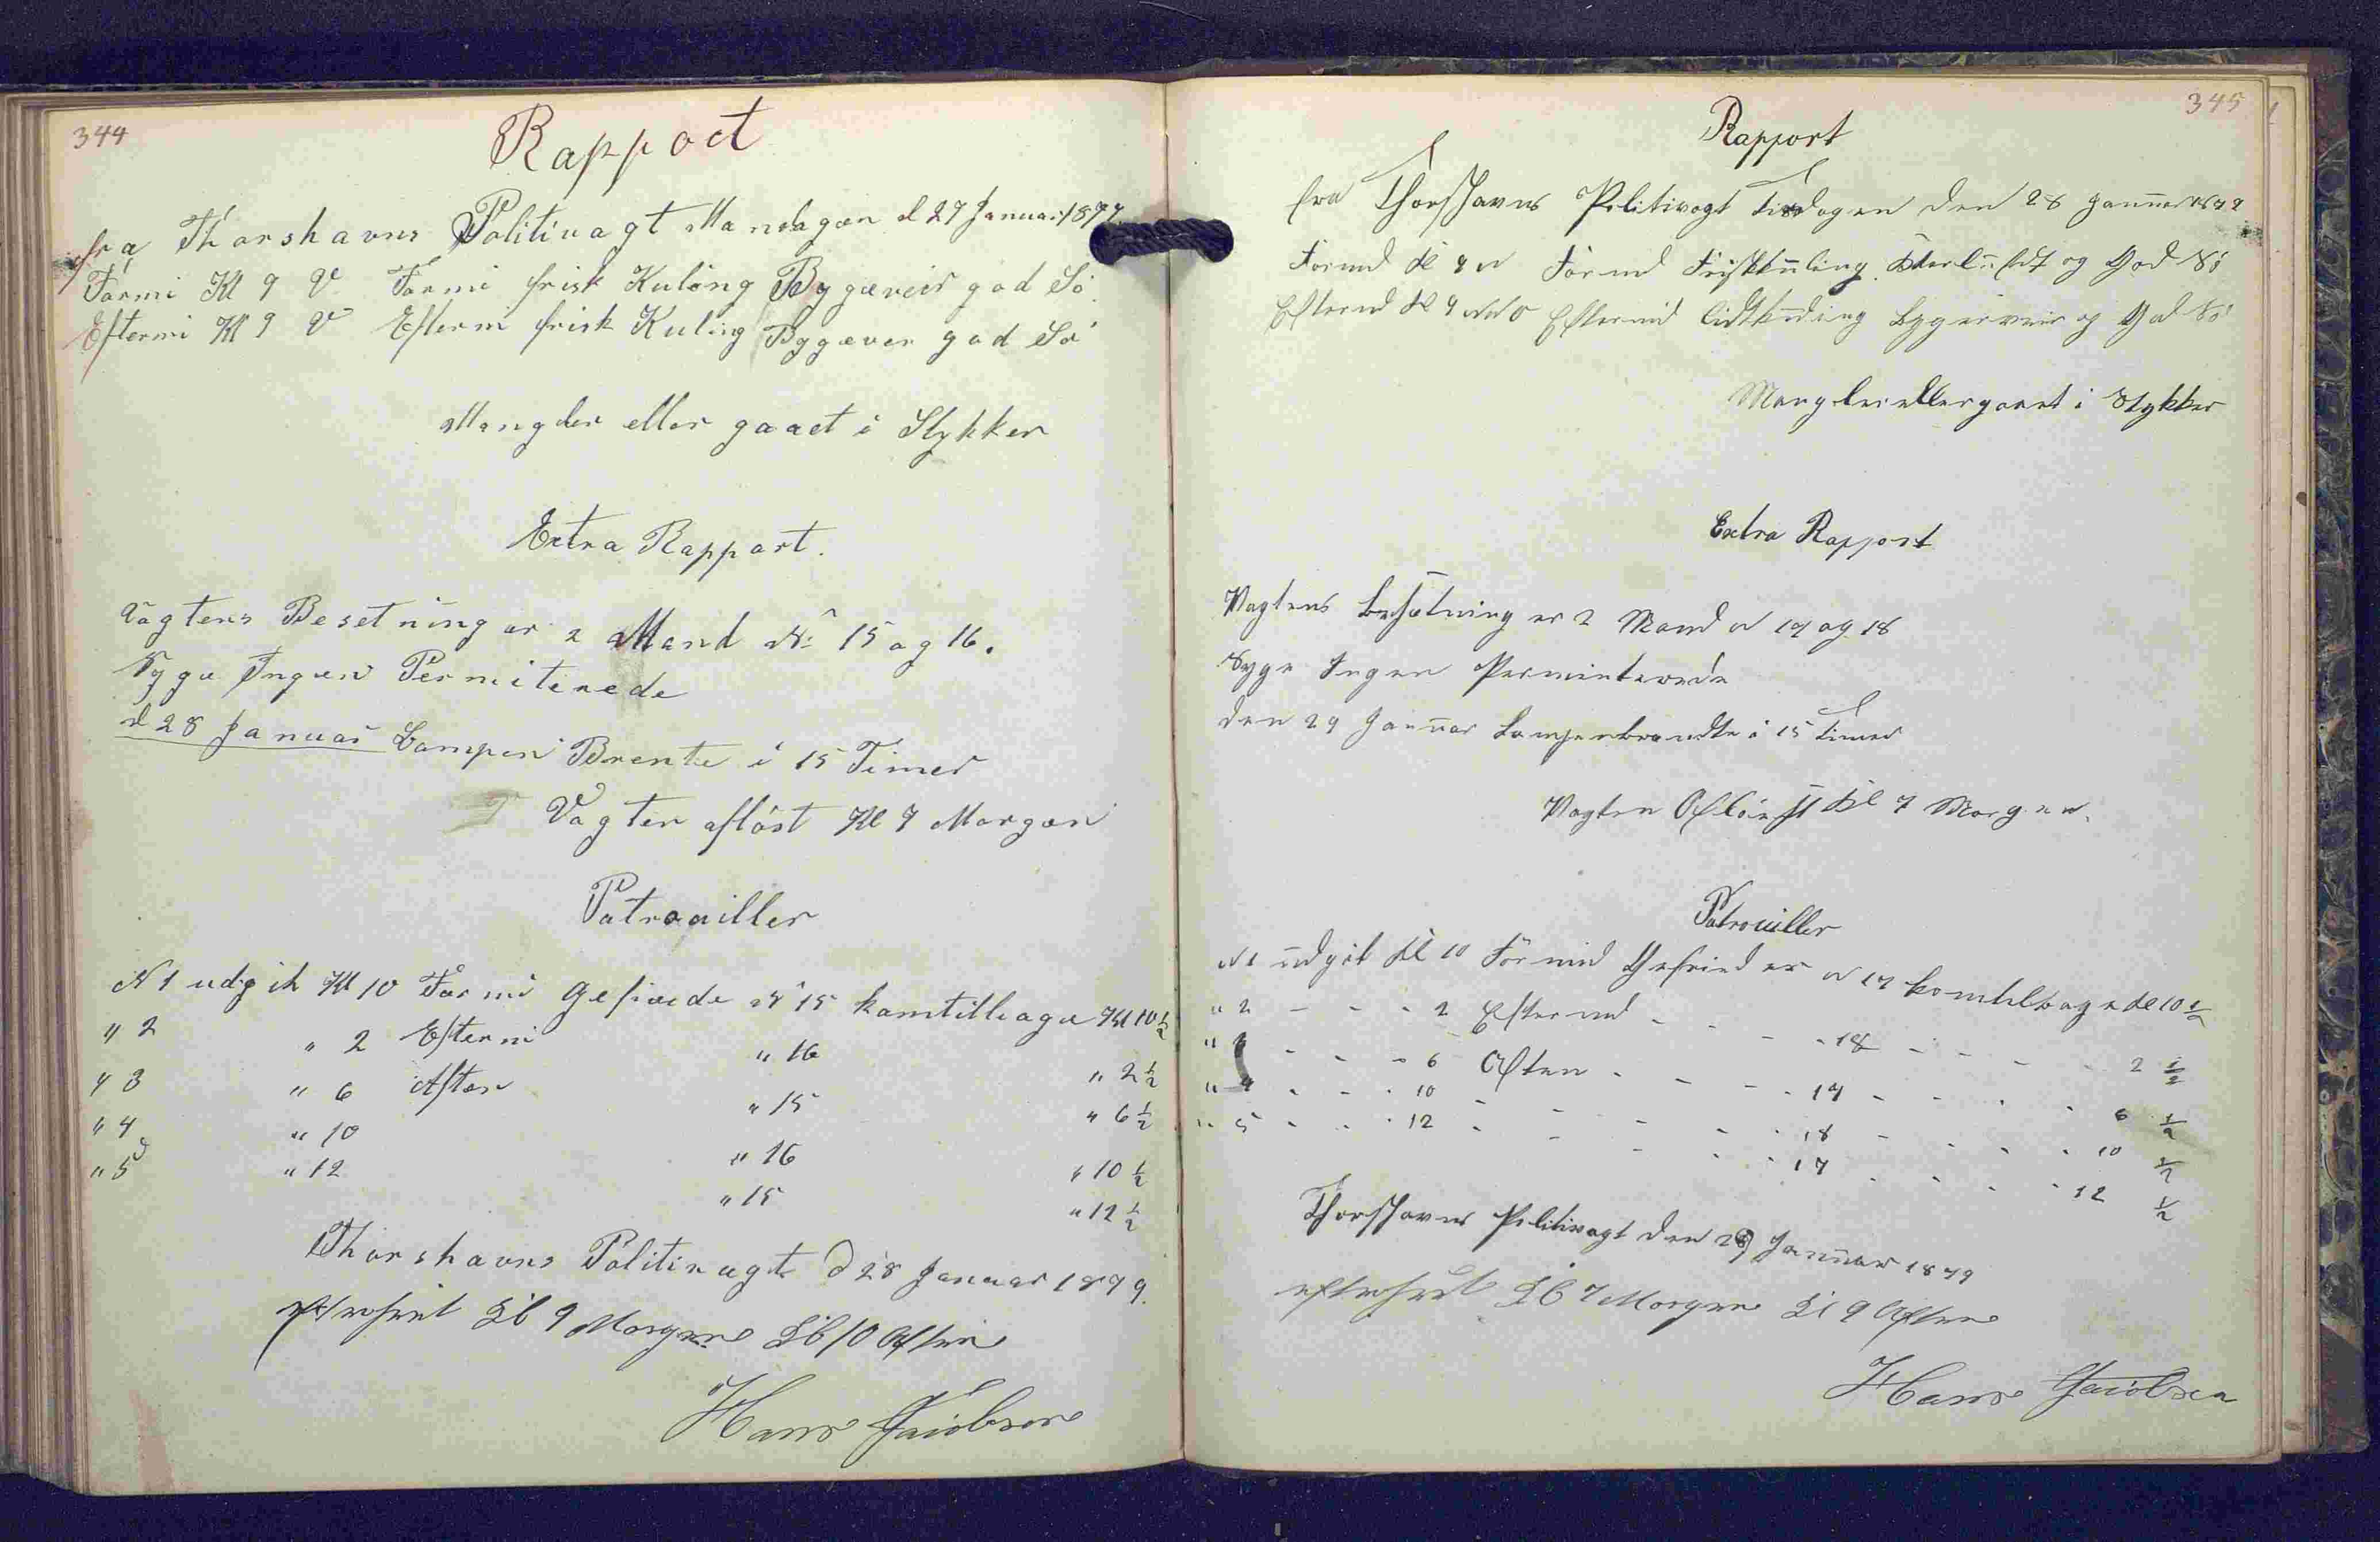 344
Rapport
fra Thorshavns Politivagt Mandagen d 27 Januar 1879.
Formi Kl 9 V Formi frisk Kuling Bygeveir god Sö.
Eftermi Kl 9 V Efterm frisk Kuling Bygever god Sö
Mangler eller gaaet i Stykker
Extra Rapport.
Vagtens Besetning er 2 Mand No 15 og 16.
Syge Ingen Permiterede
d 28 Januar Lampen Brente i 15 Timer
Vagten aflöst Kl 7 Morgen
Patrouiller
N 1 udgik Kl 10 Formi Gefreide No 15 komtilbage Kl 10 1/2
" 2 " 2 Eftermi " 16 " 2 1/2
" 3 " 6 Aften " 15 " 6 1/2
" 4 " 10 " 16 " 10 1/2
" 5 " 12 " 15 " 12 1/2
Thorshavns Politivagt d 28 Januar 1879.
efterseet Kl 9 Morgen Kl 10 Aften
Hans Jacobsen
345
Rapport
fra Thorshavns Politivagt Tirsdagen den 28 Januar 1879
Formd Kl 9 N Formd Friskkuling Klarluft og God Sö
Eftermd Kl 9 Eftermid lidtkuling Bygerveir og God Sö
Mangler eller gaaet i Stykker
Extra Rapport
Vagtens Besætning er 2 Mand N 17 og 18
Syge Ingen Perminterede
den 29 Januar Lampen brendte i 15 Timer
Vagten Aflöst Kl 7 Morgen.
Patrouiller
N 1 udgik Kl 10 Formid Gefreider N 17 komtilbage Kl 10 1/2
" 2 - - - 2 Eftermd - - - 18 - - - 2 1/2
" 3 - - - 6 Aften - - - 17 - - - 6 1/2
" 4 - - - 10 - - - 18 - - - 10 1/2
" 5 - - - 12 - - - 17 - - - 12 1/2
Thorshavns Politivagt den 29 Januar 1879
efterseet Kl 7 Morgen Kl 9 Aften
Hans Jacobsen